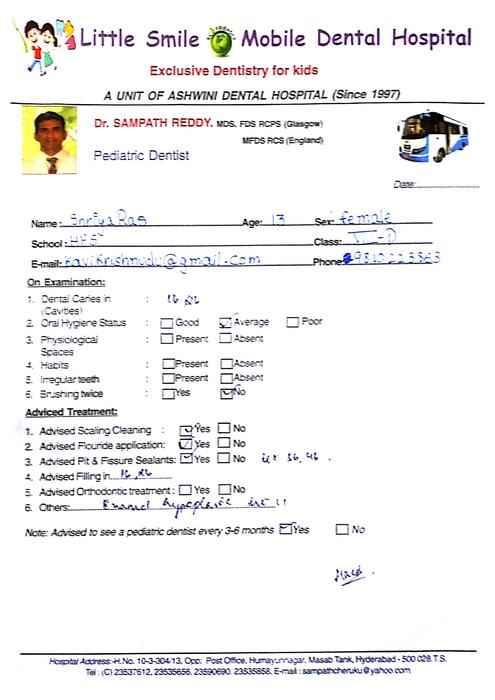 Little Smile Mobile Dental Hospital
Exclusive Dentistry for kids
A UNIT OF ASHWINI DENTAL HOSPITAL (Since 1997)
Dr. SAMPATH REDDY, MDS, FDS RCPS (Glasgow)
MFDS RCS (England)
Pediatric Dentist
Date:
Name: Age: 13 Sex: female
School: Class: VII-D
E-mail: Phone:
On Examination:
1. Dental Caries in (Cavities) : 16
2. Oral Hygiene Status : Good Average Poor
3. Physiological Spaces : Present Absent
4. Habits : Present Absent
5. Irregular teeth : Present Absent
6. Brushing twice : Yes No
Adviced Treatment:
1. Advised Scaling Cleaning : Yes No
2. Advised Flouride application: Yes No
3. Advised Pit & Fissure Sealants: Yes No 36, 46.
4. Advised Filling in 16, 26
5. Advised Orthodontic treatment: Yes No
6. Others: Enamel
Note: Advised to see a pediatric dentist every 3-6 months Yes No
Hospital Address -H.No. 10-3-304/13, Opp: Post Office, Humayunnagar, Masab Tank, Hyderabad - 500 028.T.S.
Tel : (C) 23537612, 23535656, 23590690, 23535858, E-mail : sampathcheruku@yahoo.com